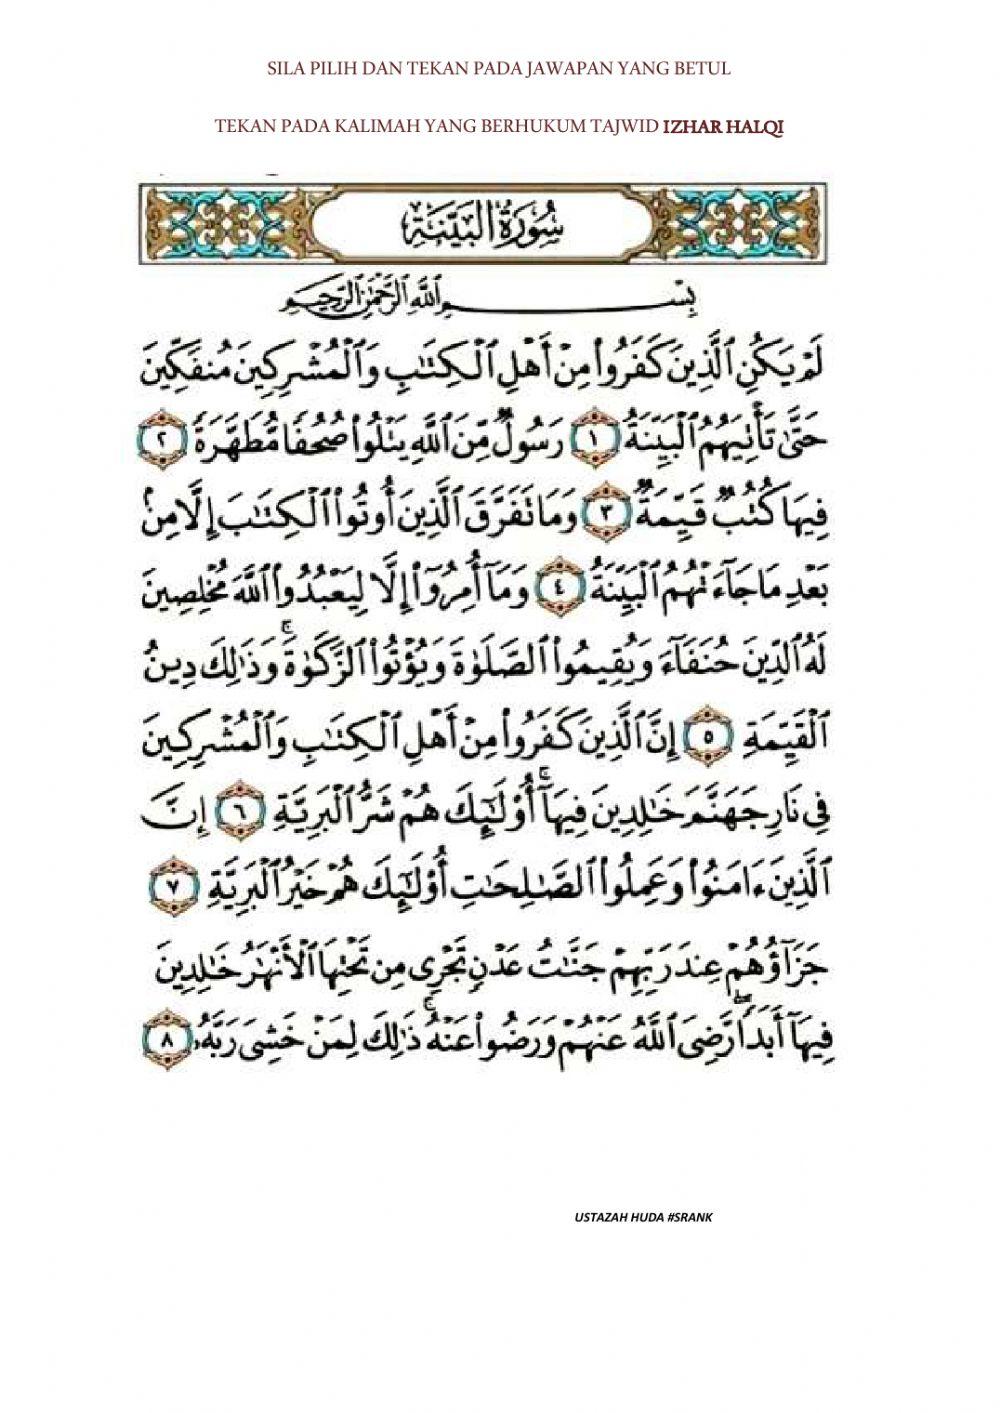 SILA PILIH DAN TEKAN PADA JAWAPAN YANG BETUL
TEKAN PADA KALIMAH YANG BERHUKUM TAJWID IZHAR HALQI
سُورَةُ الْبَيِّنَةِ
بِسْمِ ٱللَّهِ ٱلرَّحْمَٰنِ ٱلرَّحِيمِ
لَمْ يَكُنِ ٱلَّذِينَ كَفَرُوا۟ مِنْ أَهْلِ ٱلْكِتَٰبِ وَٱلْمُشْرِكِينَ مُنفَكِّينَ
حَتَّىٰ تَأْتِيَهُمُ ٱلْبَيِّنَةُ ١ رَسُولٌ مِّنَ ٱللَّهِ يَتْلُوا۟ صُحُفًا مُّطَهَّرَةً ٢
فِيهَا كُتُبٌ قَيِّمَةٌ ٣ وَمَا تَفَرَّقَ ٱلَّذِينَ أُوتُوا۟ ٱلْكِتَٰبَ إِلَّا مِنۢ
بَعْدِ مَا جَآءَتْهُمُ ٱلْبَيِّنَةُ ٤ وَمَآ أُمِرُوٓا۟ إِلَّا لِيَعْبُدُوا۟ ٱللَّهَ مُخْلِصِينَ
لَهُ ٱلدِّينَ حُنَفَآءَ وَيُقِيمُوا۟ ٱلصَّلَوٰةَ وَيُؤْتُوا۟ ٱلزَّكَوٰةَ ۚ وَذَٰلِكَ دِينُ
ٱلْقَيِّمَةِ ٥ إِنَّ ٱلَّذِينَ كَفَرُوا۟ مِنْ أَهْلِ ٱلْكِتَٰبِ وَٱلْمُشْرِكِينَ
فِى نَارِ جَهَنَّمَ خَٰلِدِينَ فِيهَآ ۚ أُو۟لَٰٓئِكَ هُمْ شَرُّ ٱلْبَرِيَّةِ ٦ إِنَّ
ٱلَّذِينَ ءَامَنُوا۟ وَعَمِلُوا۟ ٱلصَّٰلِحَٰتِ أُو۟لَٰٓئِكَ هُمْ خَيْرُ ٱلْبَرِيَّةِ ٧
جَزَآؤُهُمْ عِندَ رَبِّهِمْ جَنَّٰتُ عَدْنٍ تَجْرِى مِن تَحْتِهَا ٱلْأَنْهَٰرُ خَٰلِدِينَ
فِيهَآ أَبَدًا ۖ رَّضِىَ ٱللَّهُ عَنْهُمْ وَرَضُوا۟ عَنْهُ ۚ ذَٰلِكَ لِمَنْ خَشِىَ رَبَّهُۥ ٨
USTAZAH HUDA #SRANK